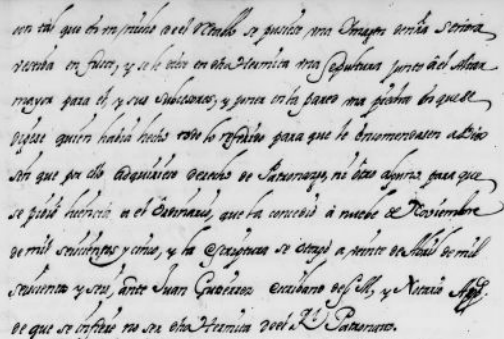 con tal que en un nicho de el Retablo se pusiese una Imagen de nra Señora
vestida en fuste, y se le diese en dha Hermita una sepultura junto a el Altar
mayor para el, y sus subcesores, y poner en la pared una piedra en que se
digese quien habia hecho todo lo referido para que le encomendasen a Dios
sin que por ello adquiriese derecho de Patronazgo, ni otro alguno, para que
se pidió licencia a el Ordinario, que la concedió à nuebe de Noviembre
de mil seiscientos y cinco, y la escriptura se otorgó a veinte de Abril de mil
seiscientos y seis, ante Juan Gutierrez escribano de S. M. y Notario App.
de que se infiere no ser dha Hermita de el Rl. Patronato.